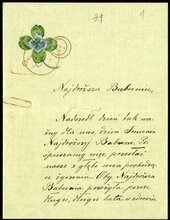 79 1
Najdroższa Babuniu,
Nadszedł dzień tak wa-
żny dla nas, dzień Imienin
Najdroższej Babuni. To
śpieszymy więc przesłać
nasze z głębi serca pochodzą-
ce życzenia. Oby Najdroższa
Babunia pożyła jeszcze
długie, długie lata w zdrowiu